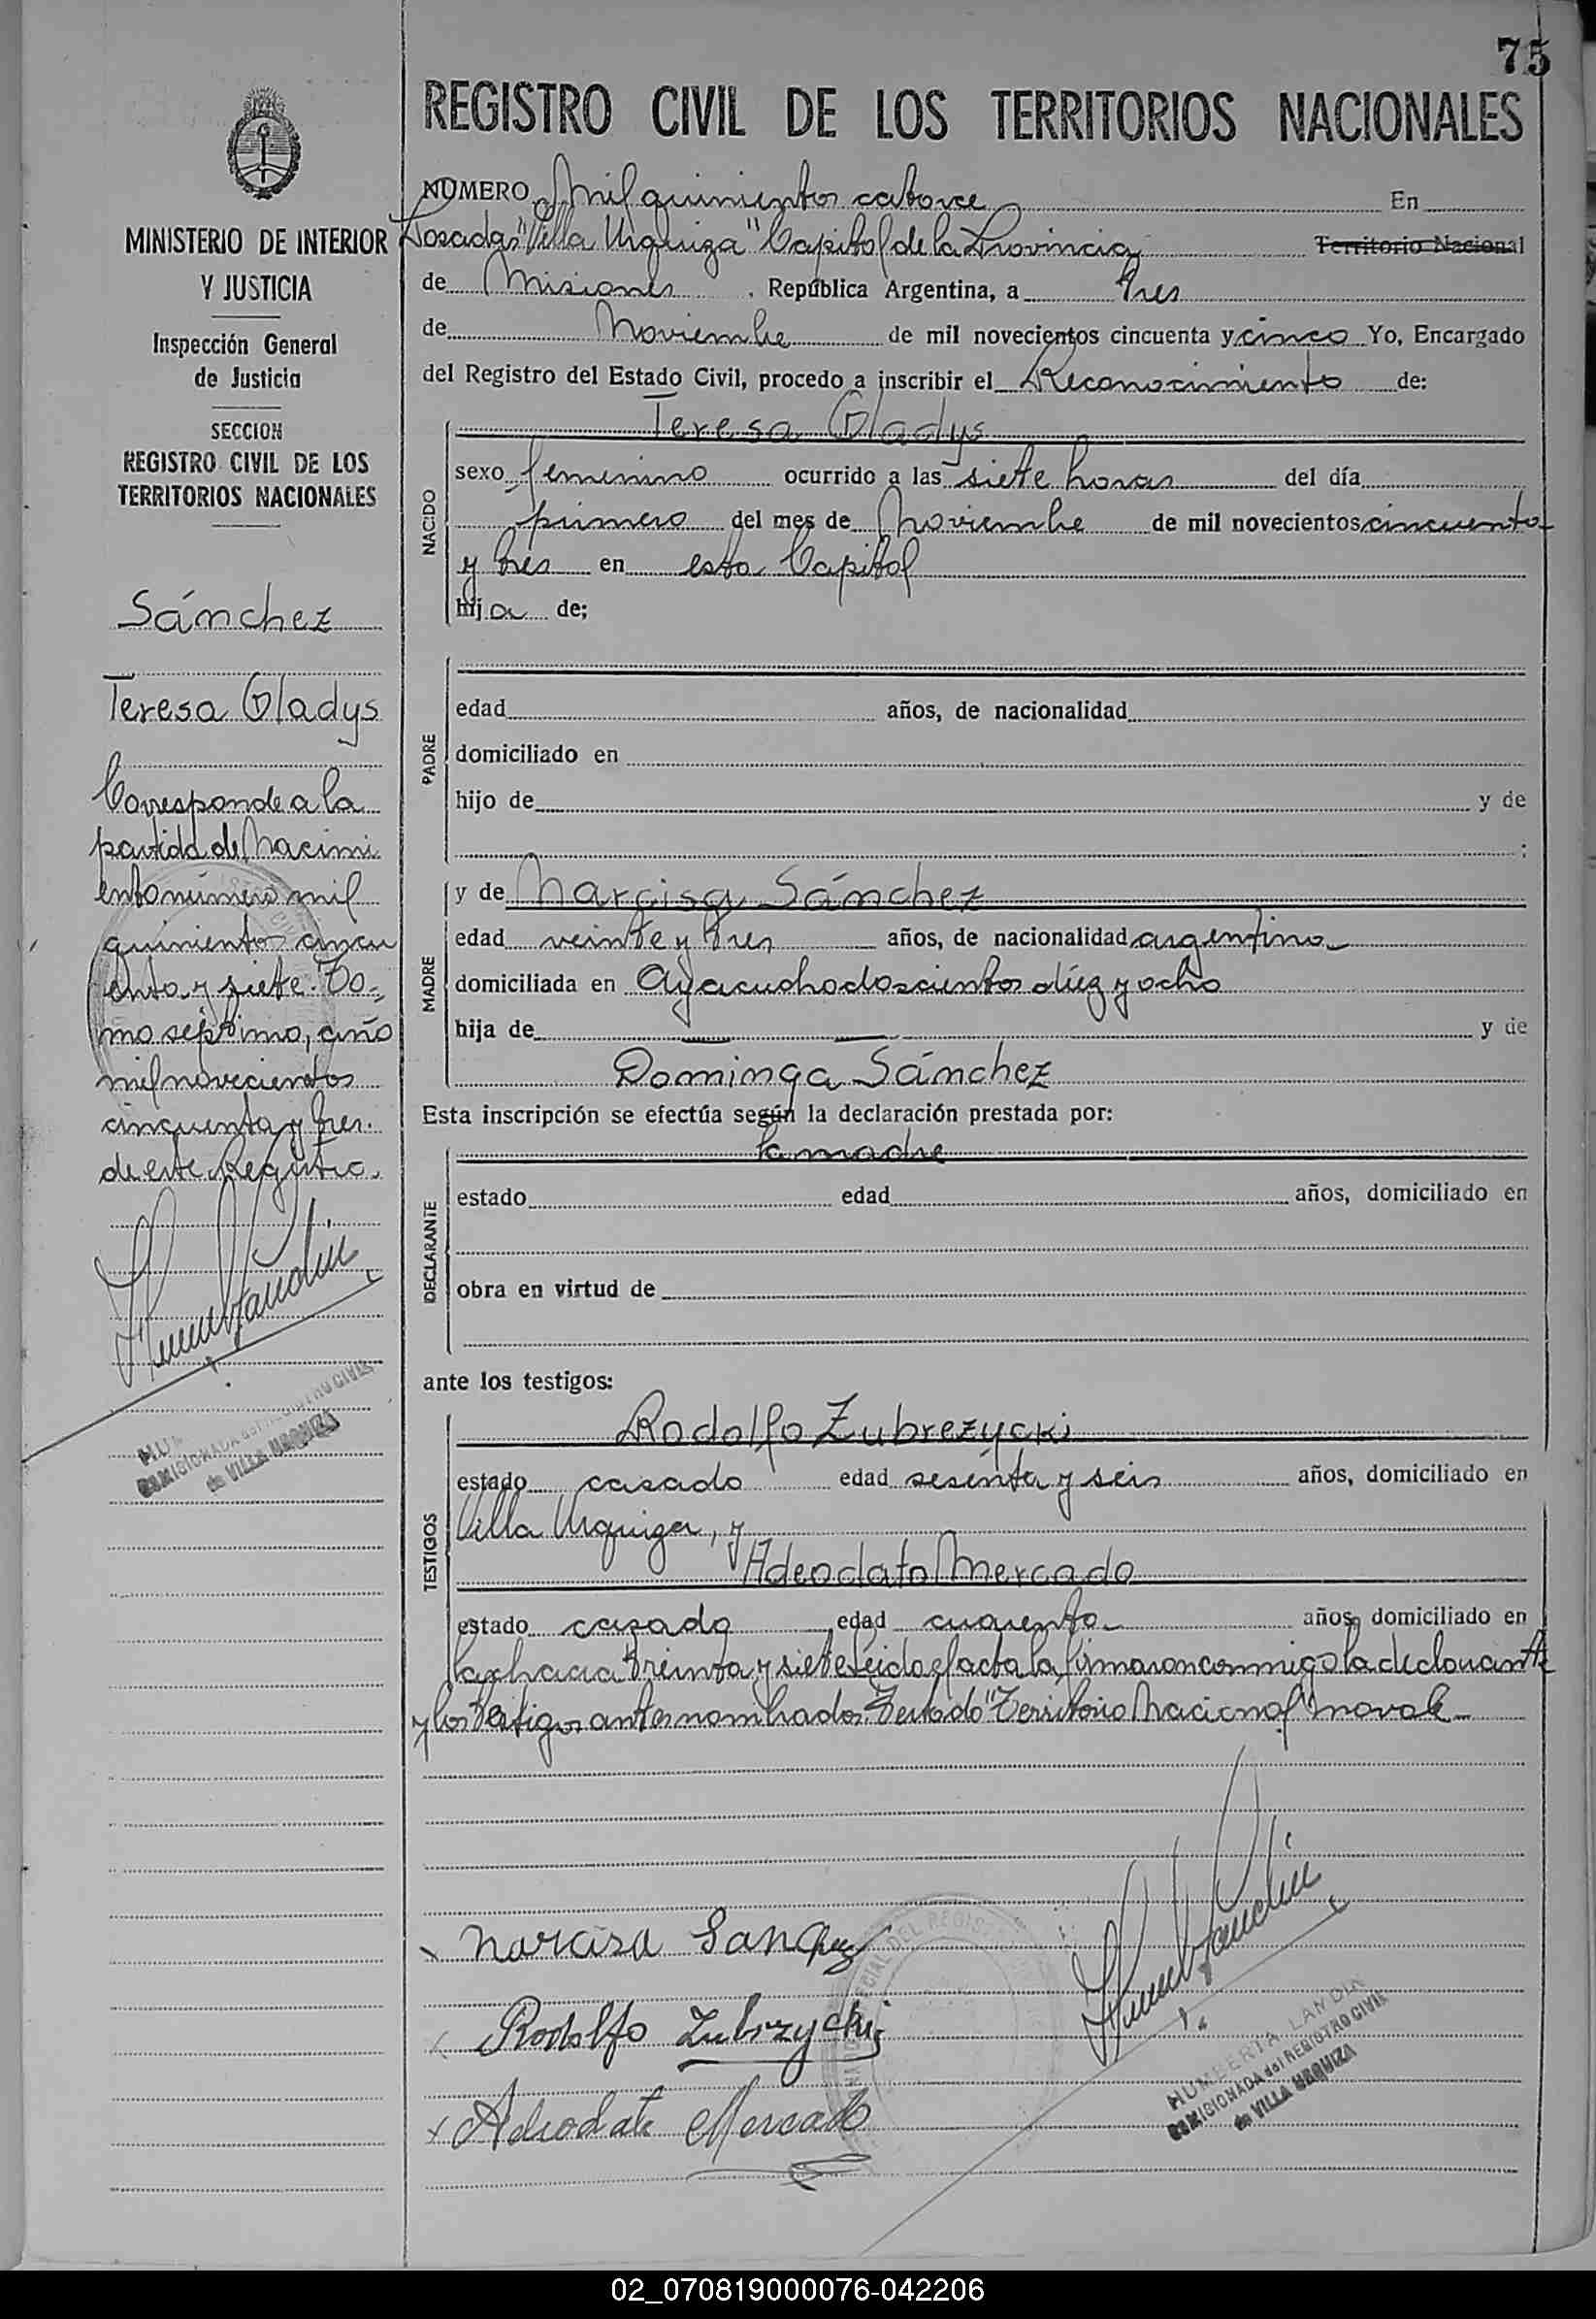 75
REGISTRO CIVIL DE LOS TERRITORIOS NACIONALES
NUMERO Mil quinientos catorce En
Posadas "Villa Urquiza" Capital de la Provincia Territorio Nacional
de Misiones, República Argentina, a tres
de Noviembre de mil novecientos cincuenta y cinco Yo, Encargado
del Registro del Estado Civil, procedo a inscribir el Reconocimiento de:
NACIDO
Teresa Gladys
sexo femenino ocurrido a las siete horas del día
primero del mes de Noviembre de mil novecientos cincuenta
y tres en esta Capital
hija de;
PADRE
edad años, de nacionalidad
domiciliado en
hijo de y de
;
MADRE
y de Narcisa Sánchez
edad veinte y tres años, de nacionalidad argentina
domiciliada en Ayacucho doscientos diez y ocho
hija de y de
Dominga Sánchez
Esta inscripción se efectúa según la declaración prestada por:
DECLARANTE
la madre
estado edad años, domiciliado en
obra en virtud de
ante los testigos:
TESTIGOS
Rodolfo Zubrezycki
estado casado edad sesenta y seis años, domiciliado en
Villa Urquiza, y
Adeodato Mercado
estado casado edad cuarenta años, domiciliado en
la chacra treinta y siete Leído el acta la firmaron conmigo la declarante
y los testigos antes nombrados. Testado "Territorio Nacional" no vale
Narcisa Sanchez
Rodolfo Zubrzycki
Adeodato Mercado
HUMBERTA LANDIN
COMISIONADA del REGISTRO CIVIL
de VILLA URQUIZA
MINISTERIO DE INTERIOR
Y JUSTICIA
Inspección General
de Justicia
SECCION
REGISTRO CIVIL DE LOS
TERRITORIOS NACIONALES
Sánchez
Teresa Gladys
Corresponde a la
partida de Nacimi
ento número mil
quinientos cincu
enta y siete. To-
mo séptimo, año
mil novecientos
cincuenta y tres.
de este Registro.
COMISIONADA del REGISTRO CIVIL
de VILLA URQUIZA
02_070819000076-042206